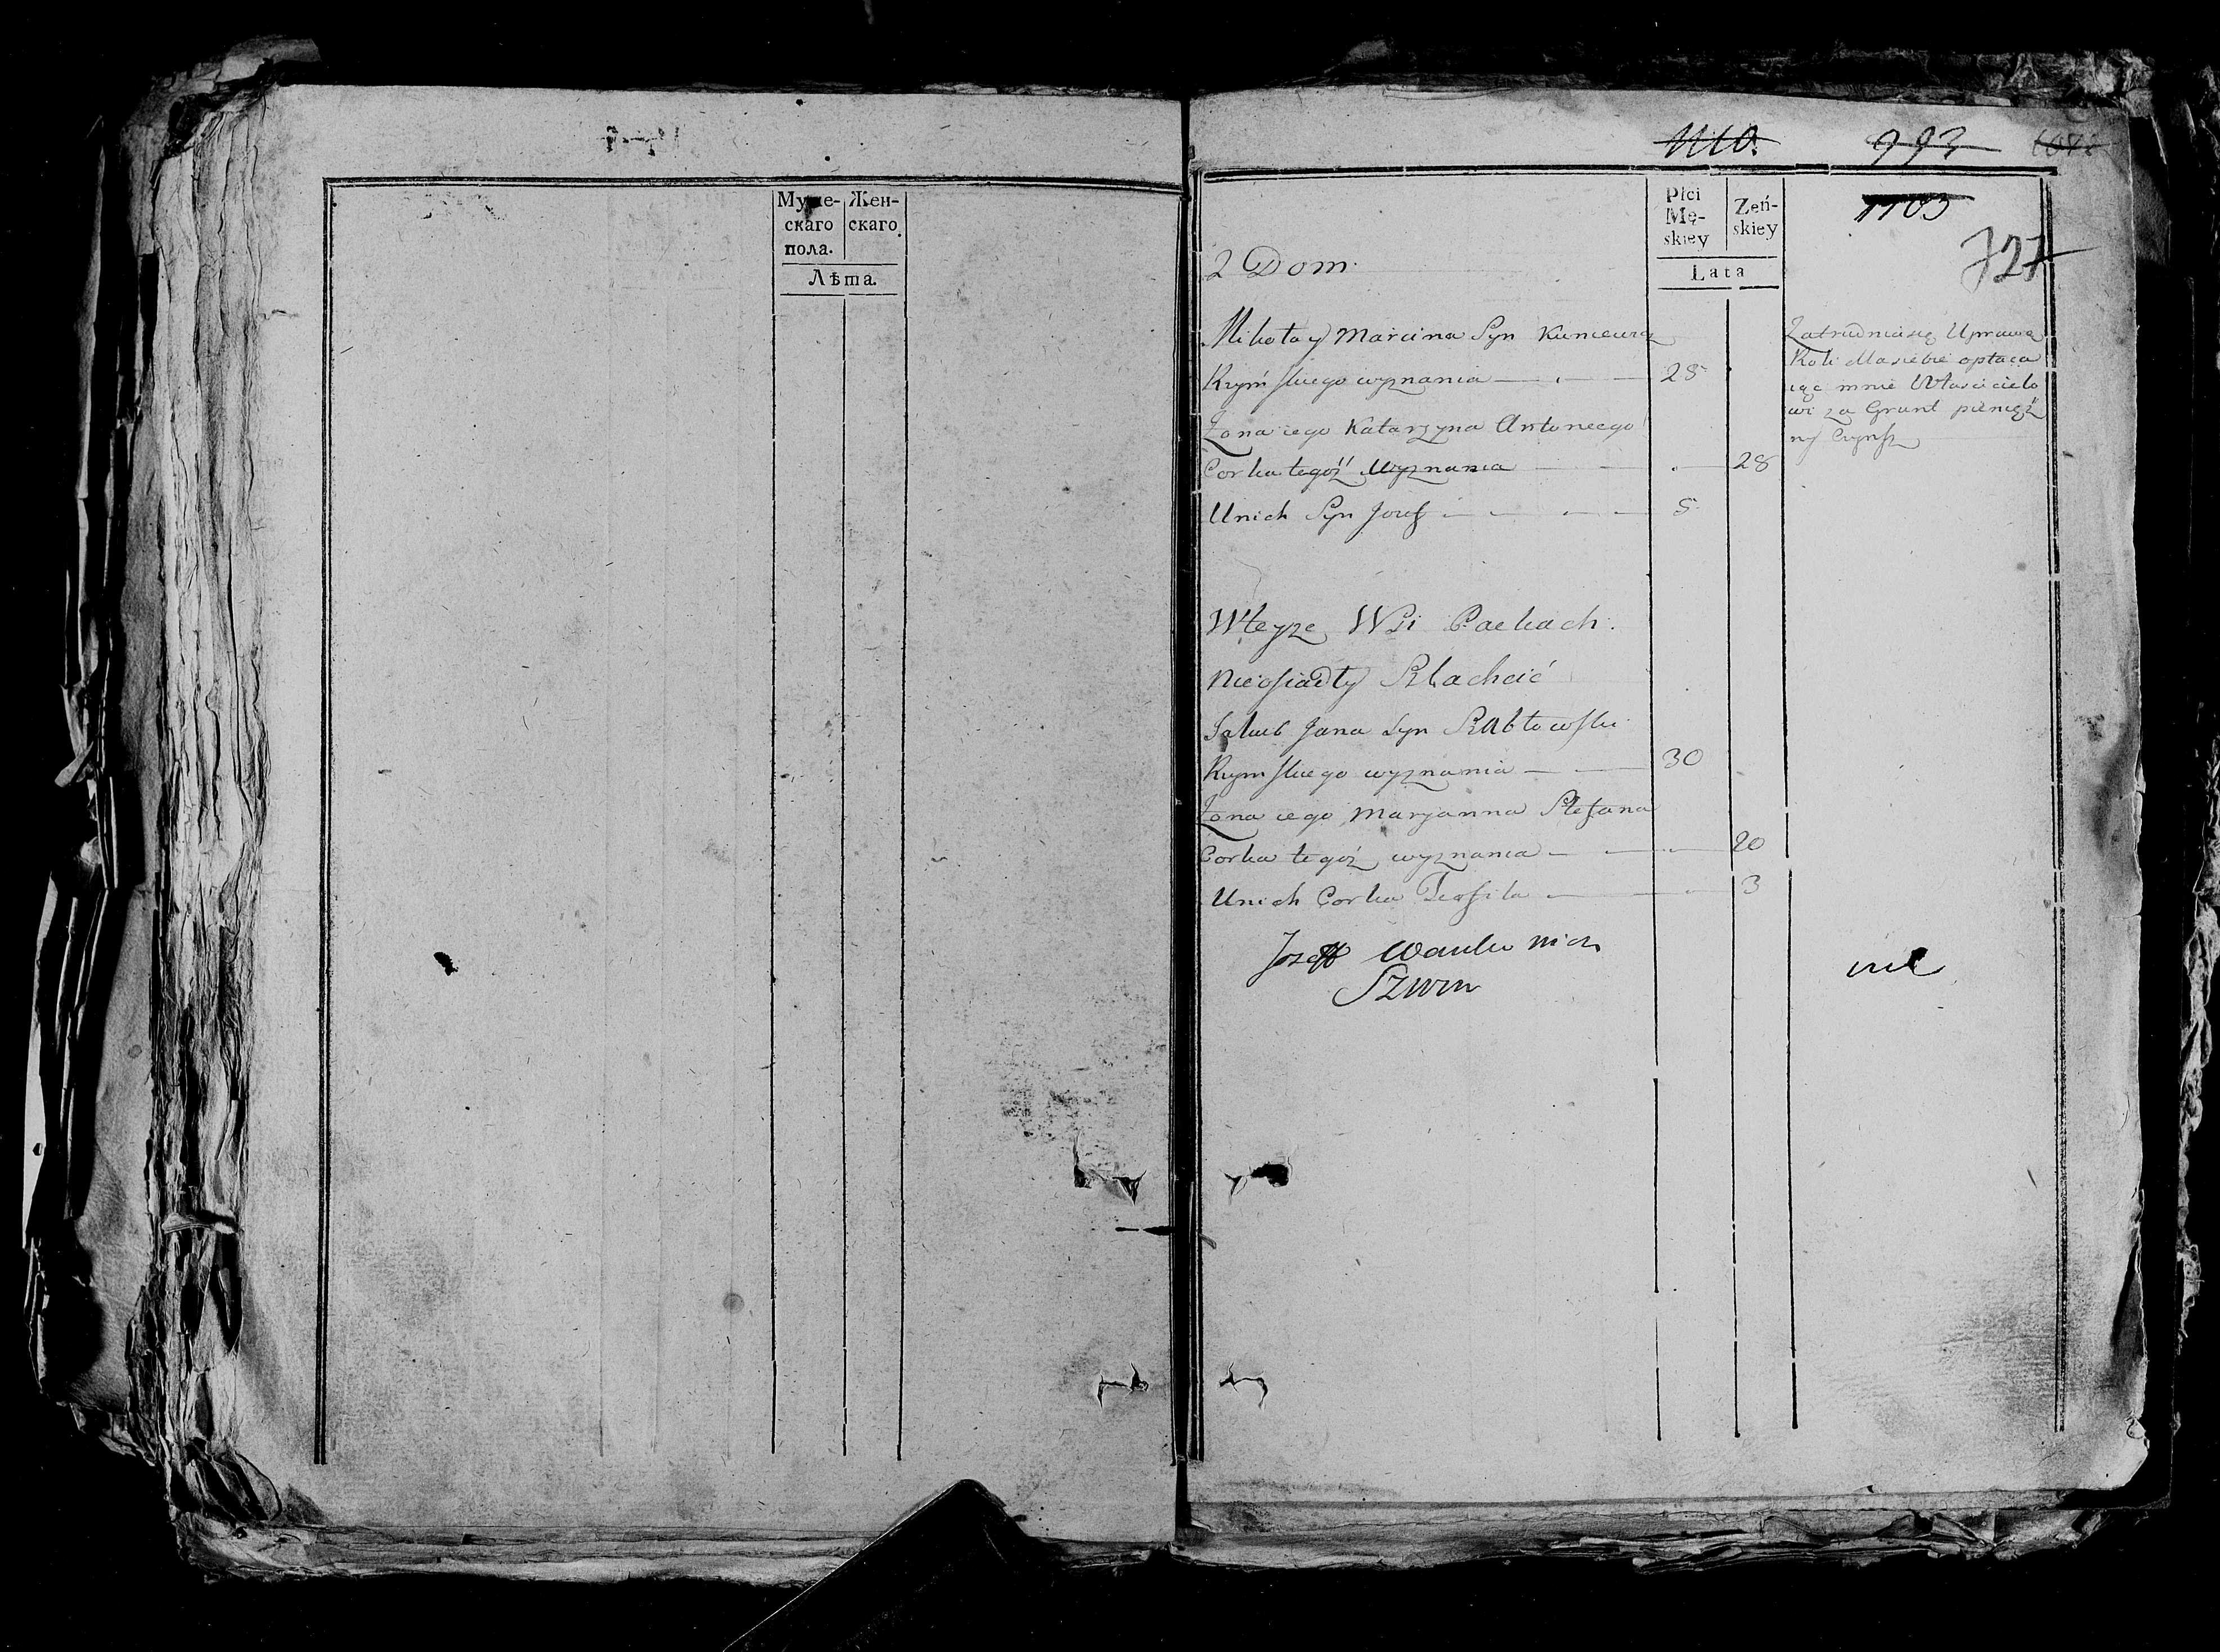 Муже- Жен-
скаго скаго
пола.
Лѣта.
993
Płci Zeń-
Mę- skiey
skiey
Lata
1103
727
2 Dom.
Mikołay Marcina Syn Kuncewicz
Rzymskiego wyznania 28
Żona iego Katarzyna Antoniego
Corka tegoż Wyznania 28
Unich Syn Jozef 5
Zatrudnia się Uprawą
Roli dla siebie opłaca
iąc mnie Właścicielo
wi za Grunt pienięż
ny Czynsz
Wteyże Wsi Packach.
Nieosiadły Szlachcić
Jakub Jana Syn Szabłowski
Rzymskiego wyznania 30
Żona iego Maryanna Stefana
Corka tegoż wyznania 20
Unich Corka Teofila 3
Jozeff Wankowicz